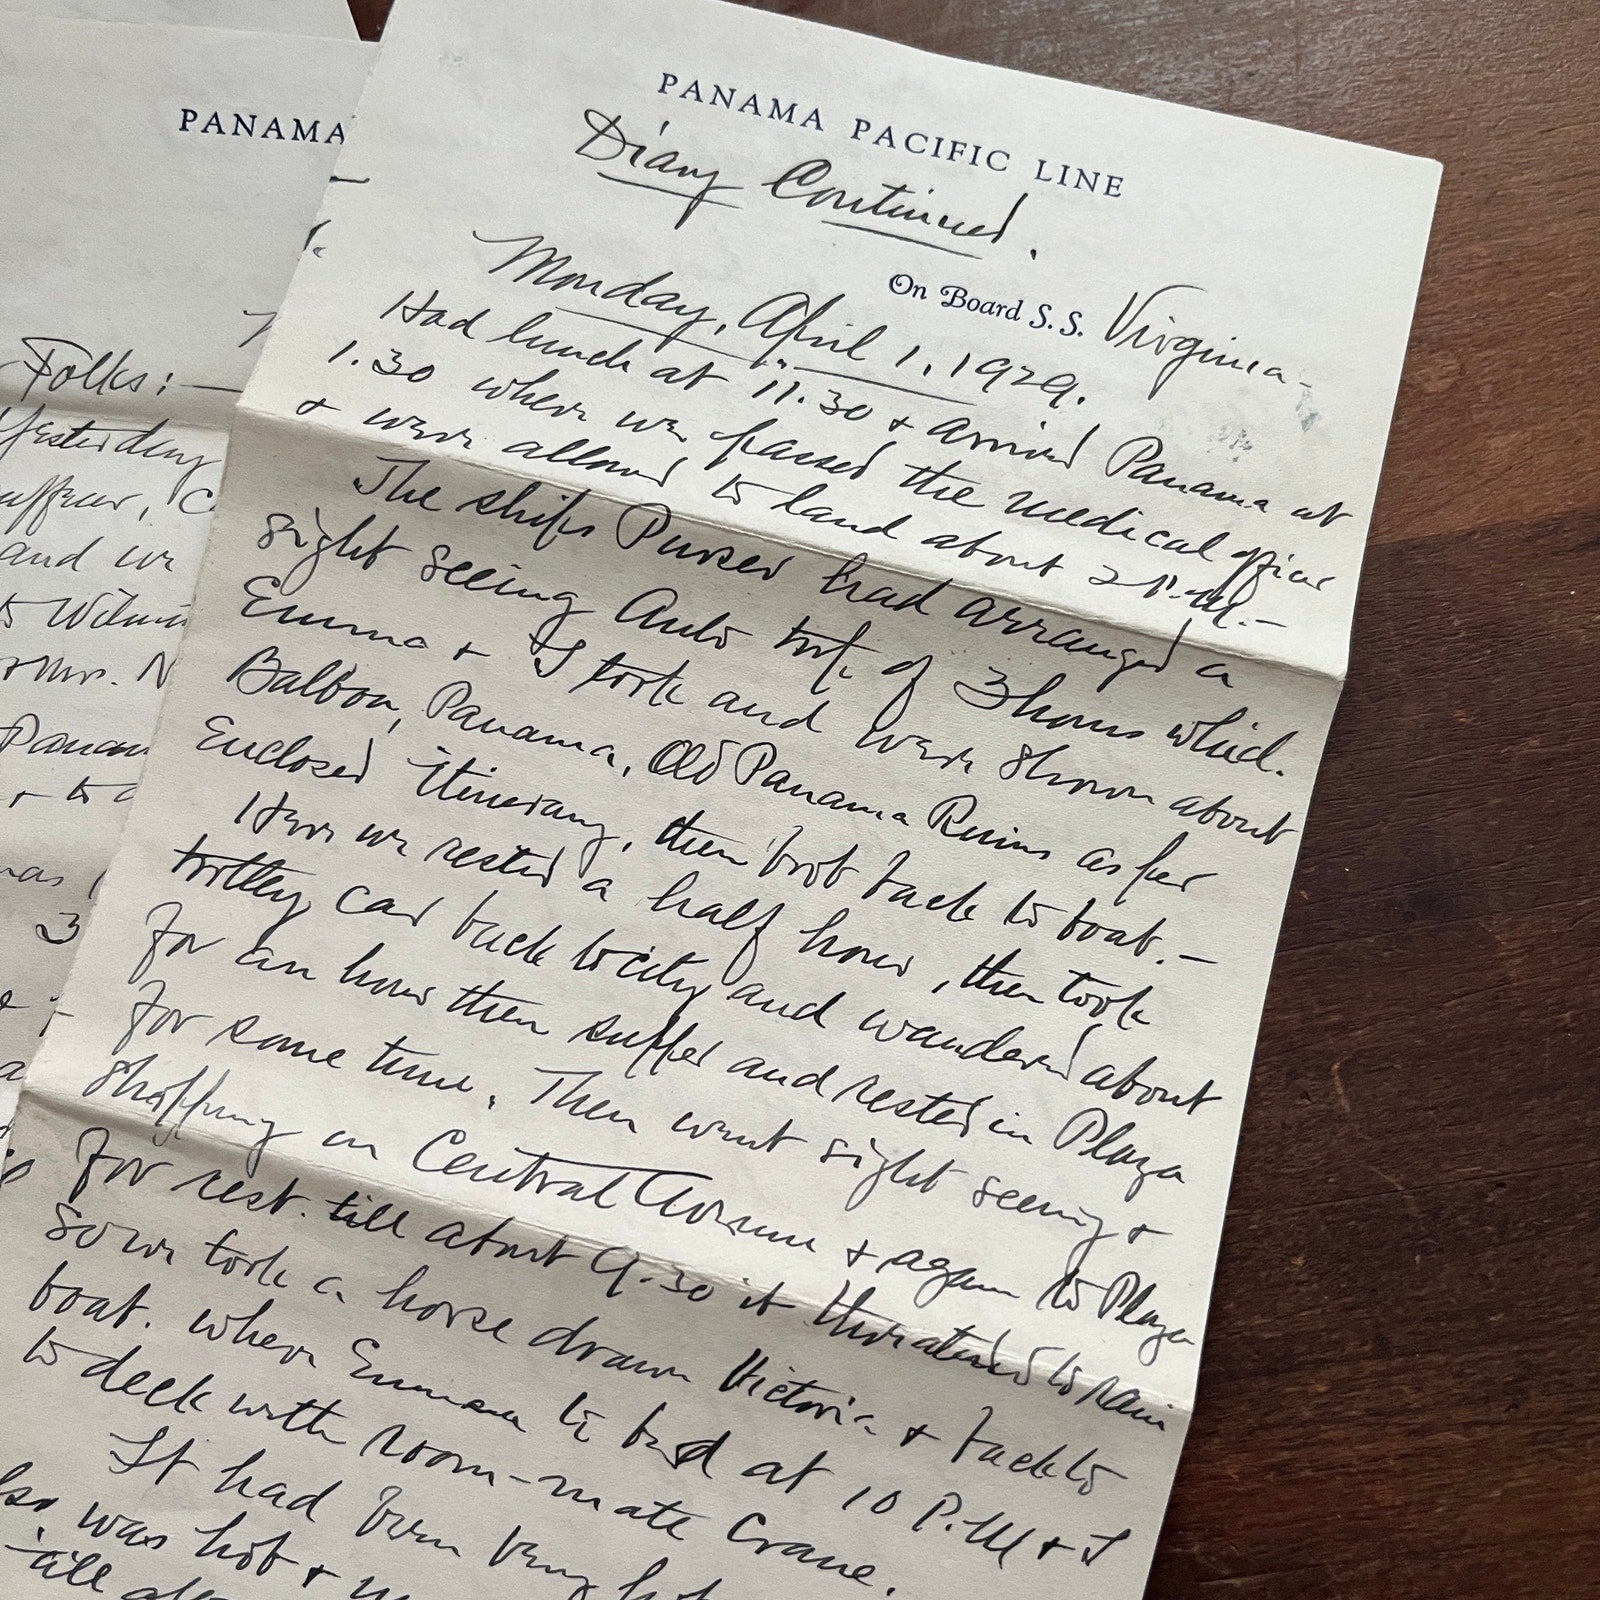 PANAMA PACIFIC LINE
Diary Continued.
On Board S. S. Virginia-
Monday, April 1, 1929.
Had lunch at 11.30 & arrived Panama at
1.30 where we passed the medical officer
& were allowed to land about 2 P.M.-
The ships Purser had arranged a
sight seeing Auto trip of 3 hours which
Emma & I took and were shown about
Balboa, Panama, Old Panama Ruins as per
Enclosed itinerary, then took back to boat.-
Here we rested a half hour, then took
trolley car back to city and wandered about
for an hour then supper and rested in Plaza
for some time. Then went sight seeing &
shopping on Central Avenue & again to Plaza
for rest. till about 9.30 it threatened to rain
so we took a horse drawn Victoria & back to
boat. where Emma to bed at 10 P.M & I
to deck with room-mate Crane.
It had been very hot
was hot &
till
PANAMA
Folks:-
Yesterday
and we
to
& Mrs. N
Panam
& to
was
3